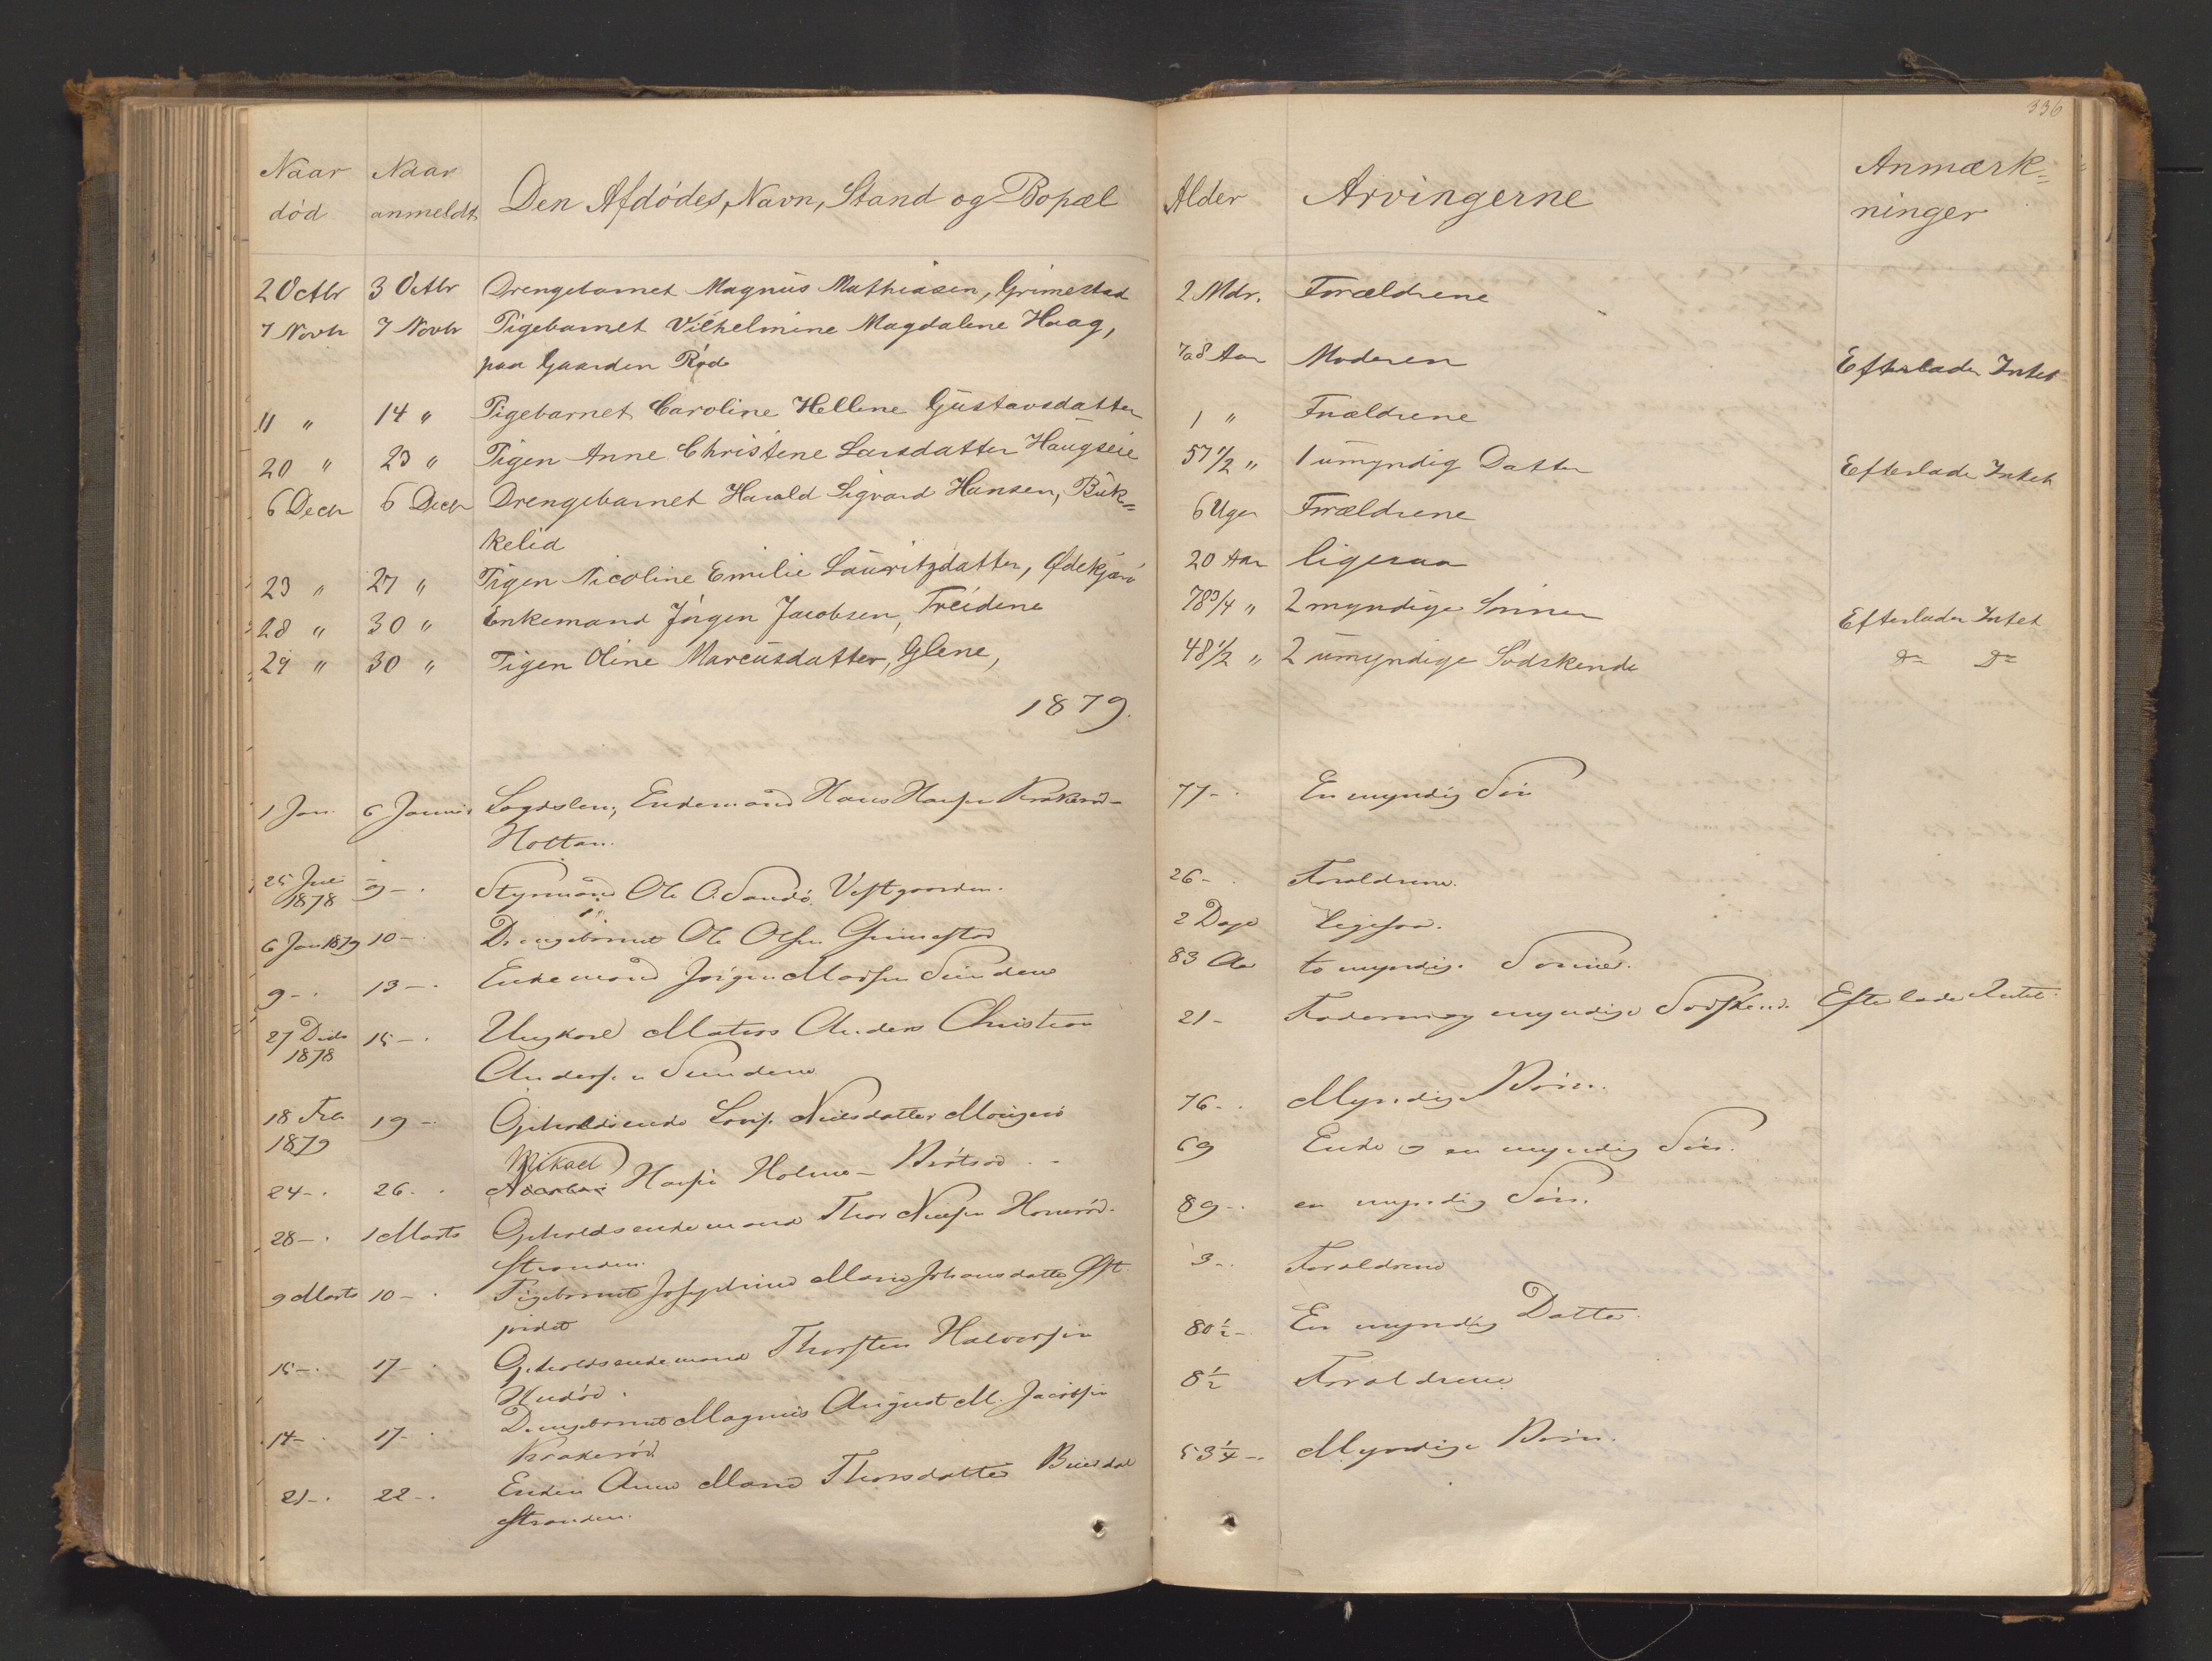 336
Naar død
Naar anmeldt
Den Afdødes, Navn, Stand og Bopæl
Alder
Arvingerne
Anmærk=
ninger
2 Octbr 3 Octbr Drengebarnet Magnus Mathiasen, Grimestad 2 Mdr. Forældrene
7 Novbr 7 Novbr Pigebarnet Vilhelmine Magdalene Haag,
paa Gaarden Rød 7 a 8 Aar Moderen Efterlader Intet
11 " 14 " Pigebarnet Caroline Hellene Gustavsdatter 1 " Forældrene
20 " 23 " Pigen Anne Christene Larsdatter Haugseie 57 1/2 " 1 umyndig Datter Efterlader Intet
6 Decbr 6 Decbr Drengebarnet Harald Sigvard Hansen, Buk=
kelid 6 Uger Forældrene
23 " 27 " Pigen Nicoline Emilie Lauritzdatter, Ødekjær 20 Aar ligesaa
28 " 30 " Enkemand Jørgen Jacobsen, Treidene 78 3/4 " 2 myndige Sønner Efterlader Intet
29 " 30 " Pigen Oline Marcusdatter, Glene, 48 1/2 " 2 umyndige Sødskende Do Do
1879.
1 Jan. 6 Januar Enkemand Hans Hansen Krakerød-
Holtan. 77 - En myndig Søn
25 1878 9 - Styrmand Ole O. Sandø. Vestgaarden. 26 - Forældrene.
6 Jan 1879 10 - Drengebarnet Ole Olsen Grimestad 2 Dage Ligesaa.
9 - 13 - Enkemand Jørgen Sundene 83 Aar to myndige Sønner.
27 Decbr 1878 15 - Ungkarl Matros Anders Christian
Andersen Sundene 21 - Faderen og myndige Sødskend. Efterlader Intet.
18 Feb. 1879 19 - Nielsdatter 76 - Myndige Børn.
Mikael
24 - 26 - Hansen Holme - 69 Enke og en myndig Søn.
28 - 1 Marts Opholdsenkemand Thor Nielsen
Stranden. 89 - en myndig Søn.
9 Marts 10 - Pigebarnet Josephine Marie Johansdatter 3 - Forældrene
15 - 17 - Opholdsenkemand Thorsten Halvorsen 80 1/2 - En myndig Datter.
14 - 17 - Drengebarnet Magnus August M. Jacobsen
Krakerød 8 1/2 Forældrene
21 - 22 - Enken Anne Marie Thorsdatter
Stranden. 53 1/4 - Myndige Børn.